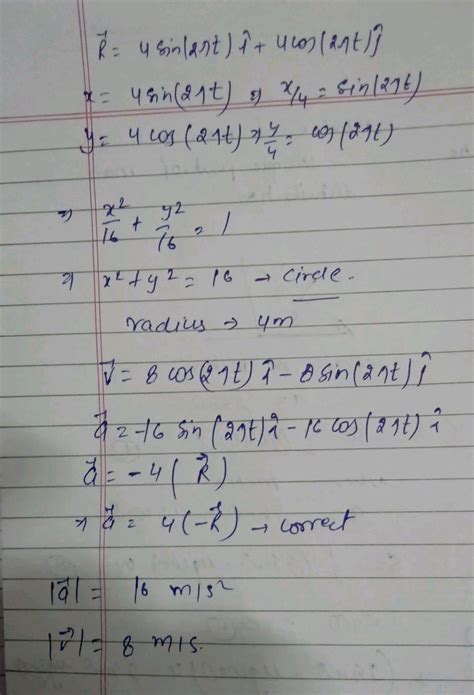 R⃗ = 4 sin(2πt) î + 4 cos(2πt) ĵ
x = 4 sin(2πt) ⇒ x/4 = sin(2πt)
y = 4 cos(2πt) ⇒ y/4 = cos(2πt)
⇒ x²/16 + y²/16 = 1
⇒ x² + y² = 16 → circle.
radius → 4m
v⃗ = 8 cos(2πt) î - 8 sin(2πt) ĵ
a⃗ = -16 sin(2πt) î - 16 cos(2πt) î
a⃗ = -4 (R⃗)
⇒ a⃗ = 4(-R⃗) → correct
|a⃗| = 16 m/s²
|v⃗| = 8 m/s.